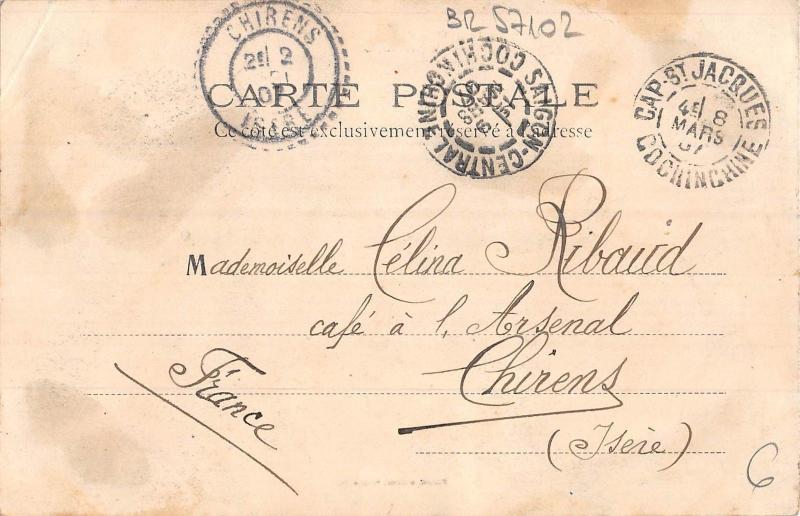 BR 57102
CHIRENS
2E 2
ISERE
SAIGON-CENTRAL COCHINCHINE
CAP-ST JACQUES
4E 8
MARS
07
COCHINCHINE
CARTE POSTALE
Ce côté est exclusivement réservé à l'adresse
Mademoiselle Célina Ribaud
café à l'Arsenal
Chirens
(Isère)
France
6